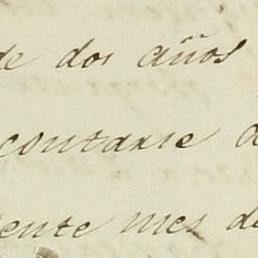 de dos años
contarse d
ente mes de